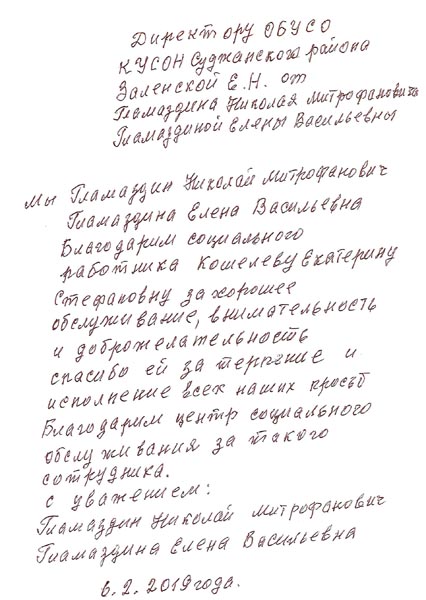 Директору ОБУСО
КУСОН Суджанского района
Заленской Е.Н. от
Гламаздина Николая Митрофановича
Гламаздиной Елены Васильевны
Мы Гламаздин Николай Митрофанович
Гламаздина Елена Васильевна
Благодарим социального
работника Кошелеву Екатерину
Стефановну за хорошее
обслуживание, внимательность
и доброжелательность
спасибо ей за терпение и
исполнение всех наших просьб
Благодарим центр социального
обслуживания за такого
сотрудника.
с уважением:
Гламаздин Николай Митрофанович
Гламаздина Елена Васильевна
6.2.2019года.